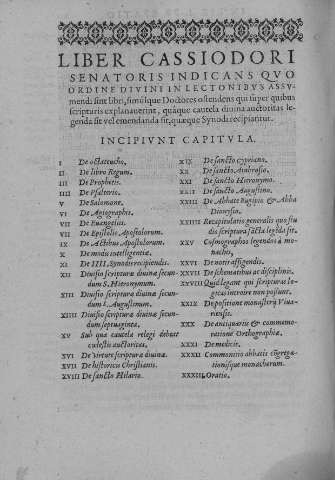 LIBER CASSIODORI
SENATORIS INDICANS QVO
ORDINE DIVINI IN LECTONIBVS ASSV-
mendi sint libri, simulque Doctores ostendens qui super quibus
scripturis explanauerint, quáque cautela diuina auctoritas le-
genda sit vel emendanda sit, quæque Synodi recipiantur.
INCIPIVNT CAPITVLA.
I De octateucho.
II De libro Regum.
III De Prophetis.
IIII De Psalterio.
V De Salomone.
VI De Agiographis.
VII De Euangeliis.
VIII De Epistolis Apostolorum.
IX De Actibus Apostolorum.
X De modis intelligentiæ.
XI De IIII, Synodis recipiendis.
XII Diuisio scripturæ diuinæ secun-
dum S. Hieronymum.
XIII Diuisio scripturæ diuinæ secun-
dum s. Augustinum.
XIIII Diuisio scripturæ diuinæ secun-
dum septuaginta.
XV Sub qua cautela relegi debeat
cælestis auctoritas.
XVI De virtute scripturæ diuinæ.
XVII De historicis Christianis.
XVIII De sancto Hilario.
XIX De sancto Cypriano.
XX De sancto Ambrosio.
XXI De sancto Hieronymo.
XXII De sancto Augustino.
XXIII De Abbate Eugipio & Abba
Dionysio.
XXIIII Recapitulatio generalis quo stu
dio scriptura sancta legenda sit.
XXV Cosmographos legendos à mo-
nachis,
XXVI De notis affigendis.
XXVII De schematibus ac disciplinis.
XXVIII Quid legant qui scripturas lo-
gicas introire non possunt.
XXIX De positione monasterij Viua-
riensis.
XXX De antiquariis & commemo-
ratione Orthographiæ.
XXXI De medicis.
XXXII Commonitio abbatis congrega-
tionisque monachorum.
XXXIII, Oratio.